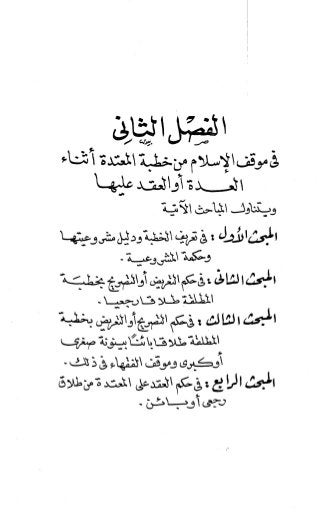 الفصل الثاني
في موقف الإسلام من خطبة المعتدة أثناء
العدة أو العقد عليها
ويتناول المباحث الآتية
المبحث الأول : في تعريف الخطبة ودليل مشروعيتها
وحكمة المشروعية .
المبحث الثاني : في حكم التعريض أو التصريح بخطبة
المطلقة طلاقا رجعيا .
المبحث الثالث : في حكم التصريح أو التعريض بخطبة
المطلقة طلاقا بائنا بينونة صغرى
أو كبرى وموقف الفقهاء في ذلك .
المبحث الرابع : في حكم العقد على المعتدة من طلاق
رجعى أو بائن .